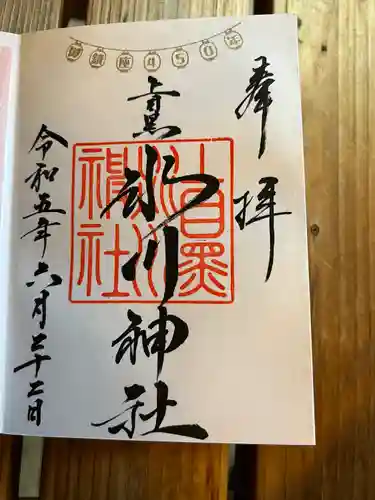 御鎮座450年
奉拝
上目黒
氷川神社
上目黒氷川神社
令和五年六月二十二日